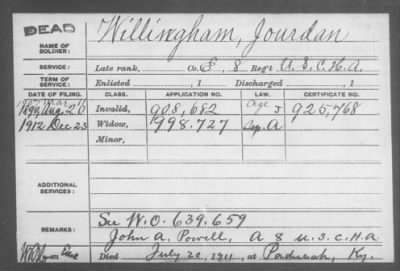 DEAD
NAME OF SOLDIER: Willingham, Jourdan
SERVICE: Late rank, Co. E, 8 Reg't U.S.C.H.A.
TERM OF SERVICE: Enlisted , 1 Discharged , 1
DATE OF FILING. CLASS. APPLICATION NO. LAW. CERTIFICATE NO.
1907 Mar
Aug. 20 Invalid, 908,682 Age J 925,768
1912 Dec. 23 Widow, 998.727 A
Minor,
ADDITIONAL SERVICES:
See W.O. 639.659
REMARKS: John A. Powell, A 8 U.S.C.H.A
Died July 20, 1911, at Paducah, Ky.